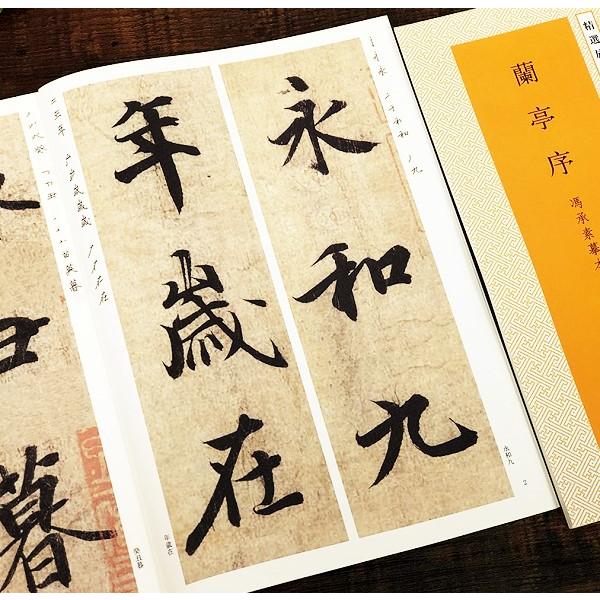 精選
蘭亭序
馮承素摹本
永和九
年歲在
暮
永和九
2
年歲在
癸丑暮